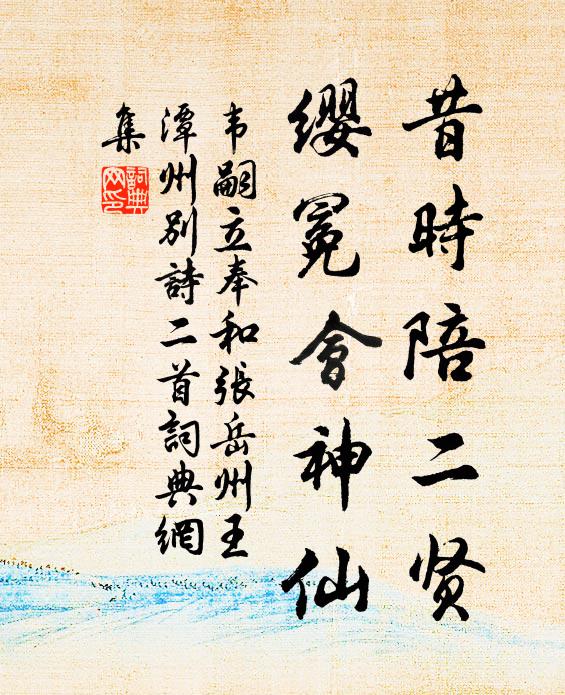 昔時陪二贤
缨冕會神仙
韦嗣立奉和張岳州王
潭州别詩二首詞典網
集
詞典網印